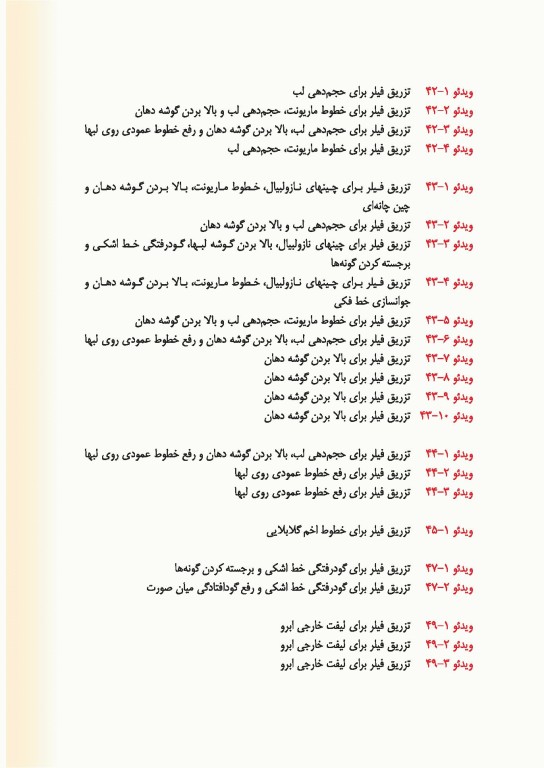 ویدئو ۱-۴۲ تزریق فیلر برای حجم‌دهی لب
ویدئو ۲-۴۲ تزریق فیلر برای خطوط ماریونت، حجم‌دهی لب و بالا بردن گوشه دهان
ویدئو ۳-۴۲ تزریق فیلر برای حجم‌دهی لب، بالا بردن گوشه دهان و رفع خطوط عمودی روی لبها
ویدئو ۴-۴۲ تزریق فیلر برای خطوط ماریونت، حجم‌دهی لب
ویدئو ۱-۴۳ تزریق فیلر برای چینهای نازولبیال، خطوط ماریونت، بالا بردن گوشه دهان و
چین چانه‌ای
ویدئو ۲-۴۳ تزریق فیلر برای حجم‌دهی لب و بالا بردن گوشه دهان
ویدئو ۳-۴۳ تزریق فیلر برای چینهای نازولبیال، بالا بردن گوشه لبها، گودرفتگی خط اشکی و
برجسته کردن گونه‌ها
ویدئو ۴-۴۳ تزریق فیلر برای چینهای نازولبیال، خطوط ماریونت، بالا بردن گوشه دهان و
جوانسازی خط فکی
ویدئو ۵-۴۳ تزریق فیلر برای خطوط ماریونت، حجم‌دهی لب و بالا بردن گوشه دهان
ویدئو ۶-۴۳ تزریق فیلر برای حجم‌دهی لب، بالا بردن گوشه دهان و رفع خطوط عمودی روی لبها
ویدئو ۷-۴۳ تزریق فیلر برای بالا بردن گوشه دهان
ویدئو ۸-۴۳ تزریق فیلر برای بالا بردن گوشه دهان
ویدئو ۹-۴۳ تزریق فیلر برای بالا بردن گوشه دهان
ویدئو ۱۰-۴۳ تزریق فیلر برای بالا بردن گوشه دهان
ویدئو ۱-۴۴ تزریق فیلر برای حجم‌دهی لب، بالا بردن گوشه دهان و رفع خطوط عمودی روی لبها
ویدئو ۲-۴۴ تزریق فیلر برای رفع خطوط عمودی روی لبها
ویدئو ۳-۴۴ تزریق فیلر برای رفع خطوط عمودی روی لبها
ویدئو ۱-۴۵ تزریق فیلر برای خطوط اخم گلابلایی
ویدئو ۱-۴۷ تزریق فیلر برای گودرفتگی خط اشکی و برجسته کردن گونه‌ها
ویدئو ۲-۴۷ تزریق فیلر برای گودرفتگی خط اشکی و رفع گودافتادگی میان صورت
ویدئو ۱-۴۹ تزریق فیلر برای لیفت خارجی ابرو
ویدئو ۲-۴۹ تزریق فیلر برای لیفت خارجی ابرو
ویدئو ۳-۴۹ تزریق فیلر برای لیفت خارجی ابرو